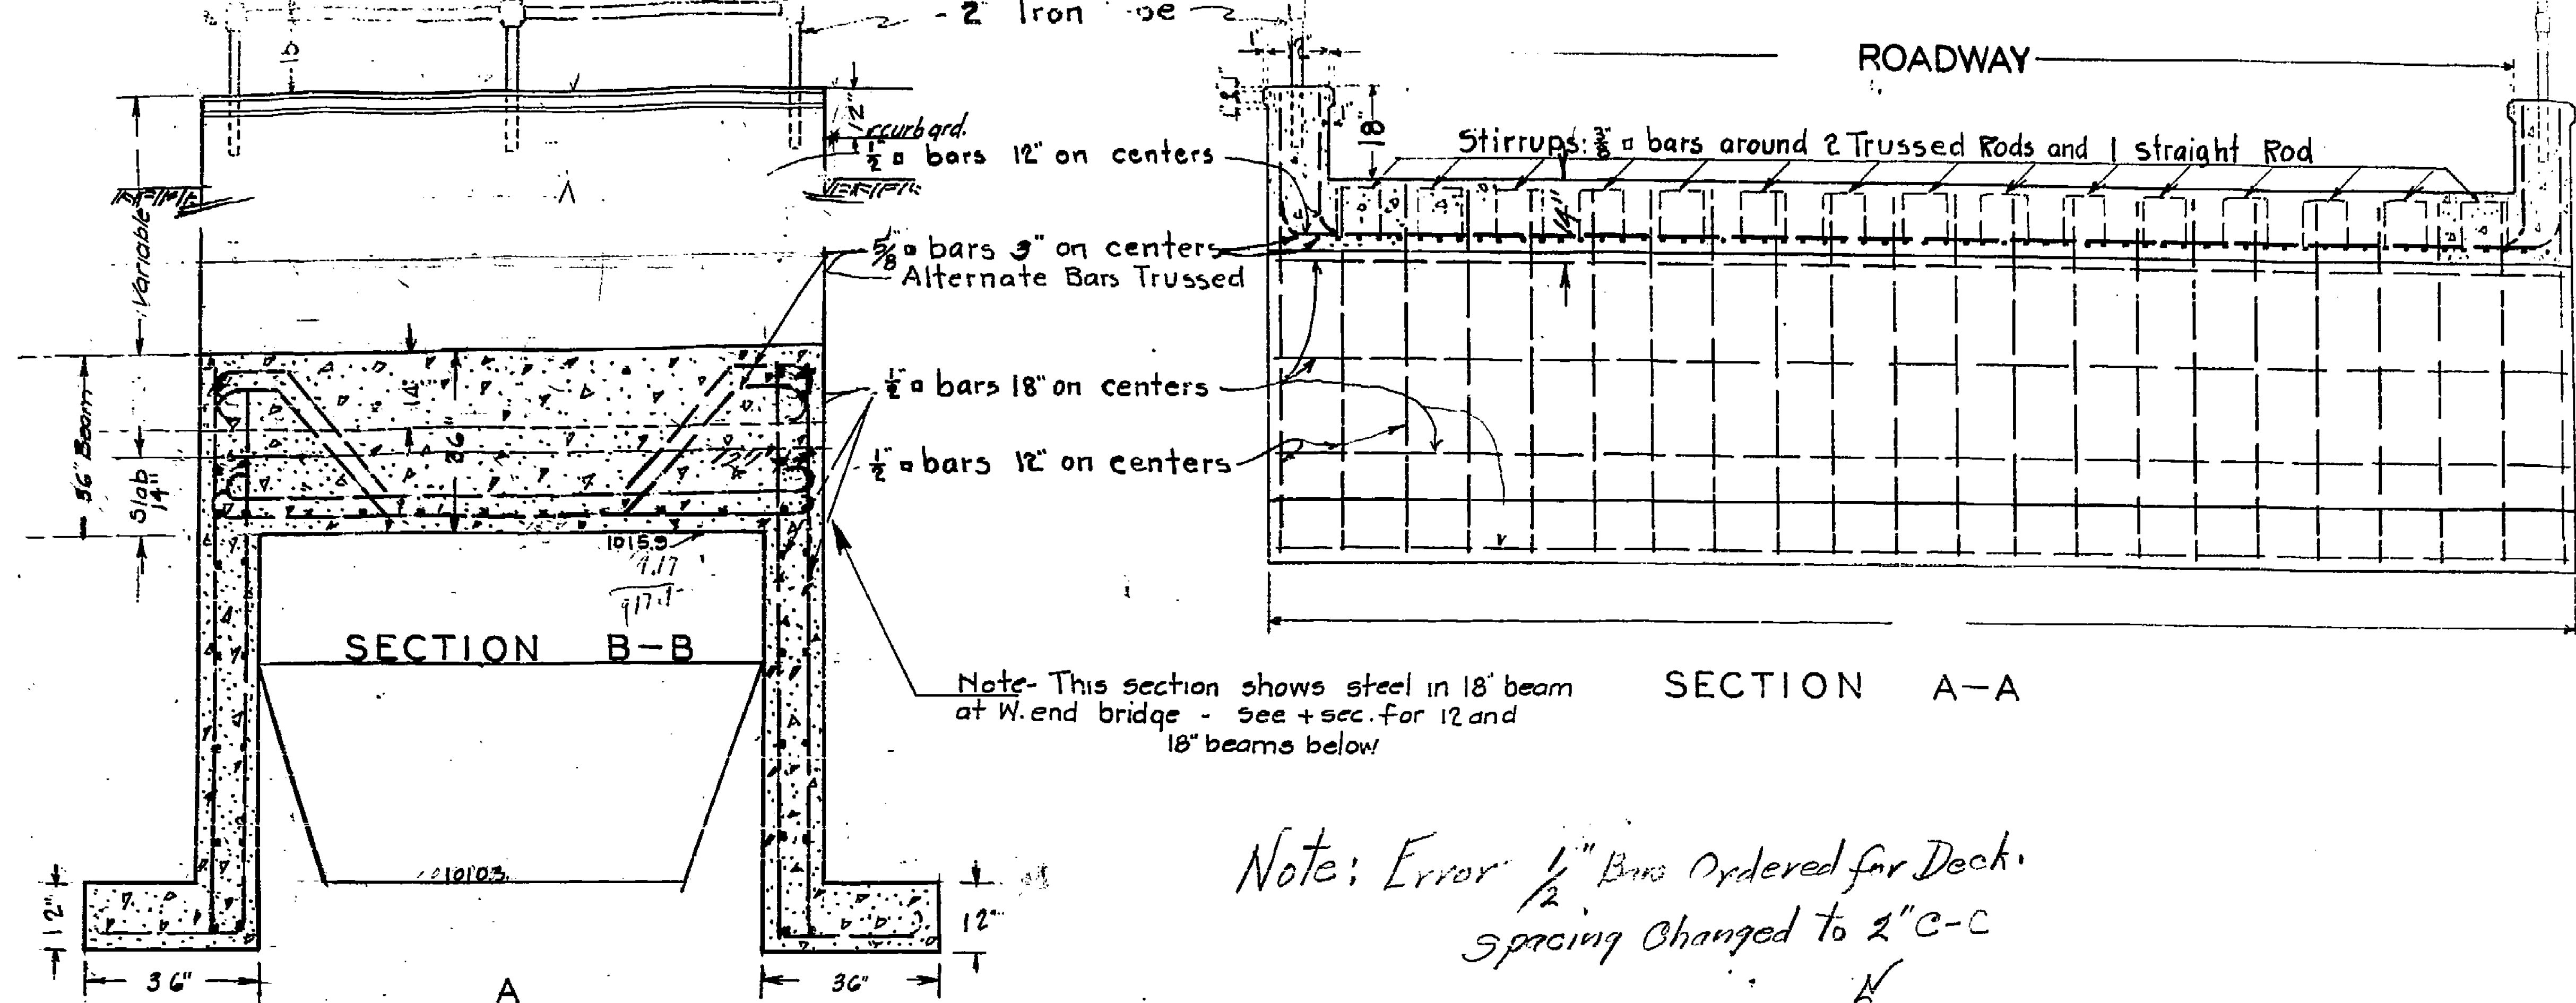 2" Iron
ROADWAY
15
12"
curb grd.
1/2" □ bars 12" on centers
18"
Stirrups: 3/8" □ bars around 2 Trussed Rods and 1 straight Rod
Variable
14"
5/8" □ bars 3" on centers
Alternate Bars Trussed
14"
36"
36" Beam
Slab
14"
1/2" □ bars 18" on centers
1/2" □ bars 12" on centers
1015.9
SECTION B-B
Note- This section shows steel in 18" beam
at W. end bridge - see + sec. for 12 and
18" beams below
SECTION A-A
1010.3
12"
12"
36"
36"
A
Note: Error 1/2" Bars Ordered for Deck.
spacing Changed to 2" C-C